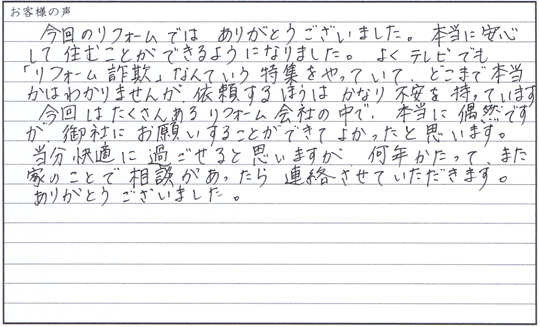 お客様の声
今回のリフォームでは ありがとうございました。本当に安心
して住むことができるようになりました。よくテレビでも、
「リフォーム詐欺」なんていう特集をやっていて、どこまで本当
かはわかりませんが 依頼するほうは かなり不安を持っています
今回は たくさんあるリフォーム会社の中で、本当に偶然です
が、御社にお願いすることができてよかったと思います。
当分快適に過ごせると思いますが、何年かたって、また
家のことで相談があったら連絡させていただきます。
ありがとうございました。